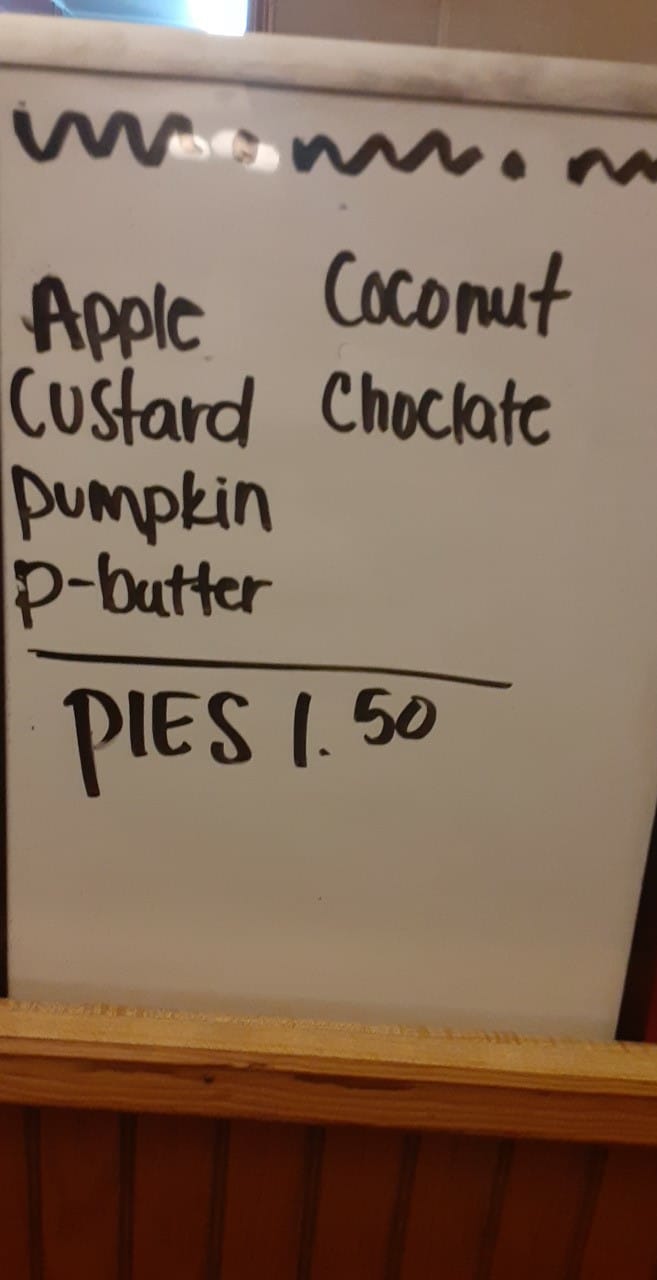 Apple Coconut
Custard Choclate
pumpkin
p-butter
PIES 1.50